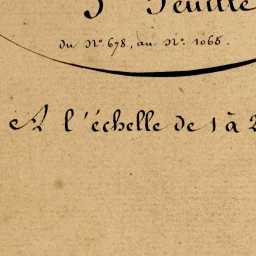 3e Feuille
du No 678, au No: 1065.
A l'échelle de 1 à 2